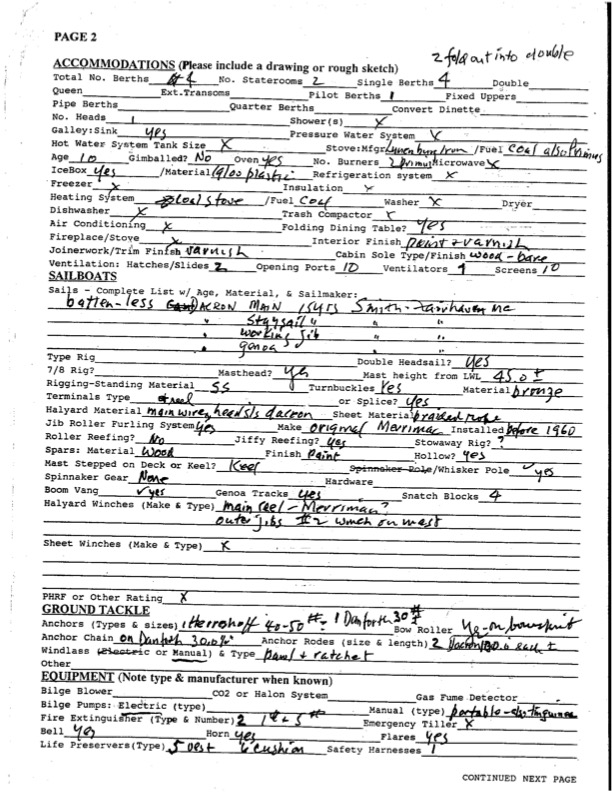 PAGE 2
2 fold out into double
ACCOMMODATIONS (Please include a drawing or rough sketch)
Total No. Berths 4 No. Staterooms 2 Single Berths 4 Double
Queen Ext.Transoms Pilot Berths 1 Fixed Uppers
Pipe Berths Quarter Berths Convert Dinette
No. Heads 1 Shower(s) X
Galley:Sink yes Pressure Water System X
Hot Water System Tank Size X Stove:Mfgr Lunenburg Iron /Fuel Coal also Primus
Age 10 Gimballed? No Oven yes No. Burners 2 Primus Microwave X
IceBox yes /Material Glass plastic Refrigeration system X
Freezer X Insulation X
Heating System Coal Stove /Fuel Coal Washer X Dryer
Dishwasher X Trash Compactor X
Air Conditioning X Folding Dining Table? yes
Fireplace/Stove X Interior Finish Paint + varnish
Joinerwork/Trim Finish varnish Cabin Sole Type/Finish wood - bare
Ventilation: Hatches/Slides 2 Opening Ports 10 Ventilators 1 Screens 10
SAILBOATS
Sails - Complete List w/ Age, Material, & Sailmaker:
batten-less DACRON MAIN 15yrs Smith - Fairhaven Ma
" Staysail " " "
" working jib " "
" genoa " "
Type Rig Double Headsail? yes
7/8 Rig? Masthead? yes Mast height from LWL 45.0 ±
Rigging-Standing Material SS Turnbuckles Yes Material bronze
Terminals Type or Splice? yes
Halyard Material main wire, heads/s dacron Sheet Material braided rope
Jib Roller Furling System yes Make original Merriman Installed before 1960
Roller Reefing? No Jiffy Reefing? yes Stowaway Rig? ?
Spars: Material Wood Finish Paint Hollow? yes
Mast Stepped on Deck or Keel? Keel Spinnaker Pole/Whisker Pole yes
Spinnaker Gear None Hardware
Boom Vang yes Genoa Tracks yes Snatch Blocks 4
Halyard Winches (Make & Type) main reel - Merriman?
outer jibs #2 winch on mast
Sheet Winches (Make & Type) X
PHRF or Other Rating X
GROUND TACKLE
Anchors (Types & sizes) 1 Herreshoff 40-50# - 1 Danforth 30# Bow Roller Yes-on bowsprit
Anchor Chain on Danforth Anchor Rodes (size & length) 2 each ±
Windlass (Electric or Manual) & Type pawl + ratchet
Other
EQUIPMENT (Note type & manufacturer when known)
Bilge Blower CO2 or Halon System Gas Fume Detector
Bilge Pumps: Electric (type) Manual (type) portable
Fire Extinguisher (Type & Number) 2 Emergency Tiller X
Bell yes Horn yes Flares yes
Life Preservers(Type) 5 vest 6 cushion Safety Harnesses 1
CONTINUED NEXT PAGE